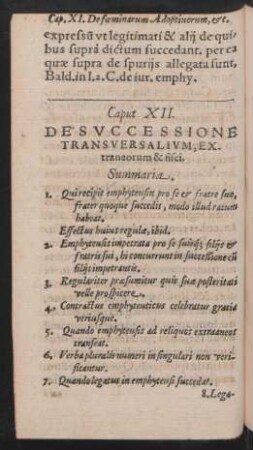 Cap. XI. De fœminarum Adoptiuorum, &c.
expressũ vt legitimati & alij de quibus
bus suprà dictum succedant. per ea
quæ supra de spurijs allegata sunt.
Bald. in l. 2. C. de iur. emphy.
Caput XII.
DE SVCCESSIONE
TRANSVERSALIVM, EX-
traneorum & fisci.
Summaria.
1. Qui recipit emphyteusin pro se & fratre suo,
frater quoque succedit, modo illud ratum
habeat.
Effectus huius regulæ, ibid.
2. Emphyteusis impetrata pro se suisq; filijs &
fratris sui, hi concurrunt in successione cũ
filijs impetrantis.
3. Regulariter præsumitur quis suæ posteritati
velle prospicere.
4. Contractus emphyteuticus celebratur gratia
vtriusque.
5. Quando emphyteusis ad reliquos extraneos
transeat.
6. Verba pluralis numeri in singulari non veri-
ficantur.
7. Quando legatus in emphyteusi succedat.
8. Lega-